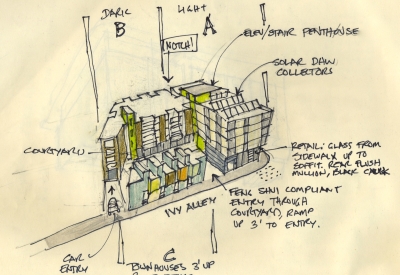 DARK
LIGHT
B
A
NOTCH!
ELEV/STAIR PENTHOUSE
SOLAR DAWN
COLLECTORS
COURTYARD
RETAIL: GLASS FROM
SIDEWALK UP TO
SOFFIT. REAR FLUSH
MULLION, BLACK CAULK
FENG SHUI COMPLIANT
ENTRY THROUGH
COURTYARD, RAMP
UP 3' TO ENTRY.
IVY ALLEY
CAR
ENTRY
C
TOWNHOUSES 3' UP